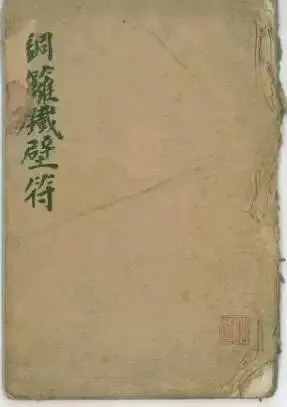 銅籬鐵壁符